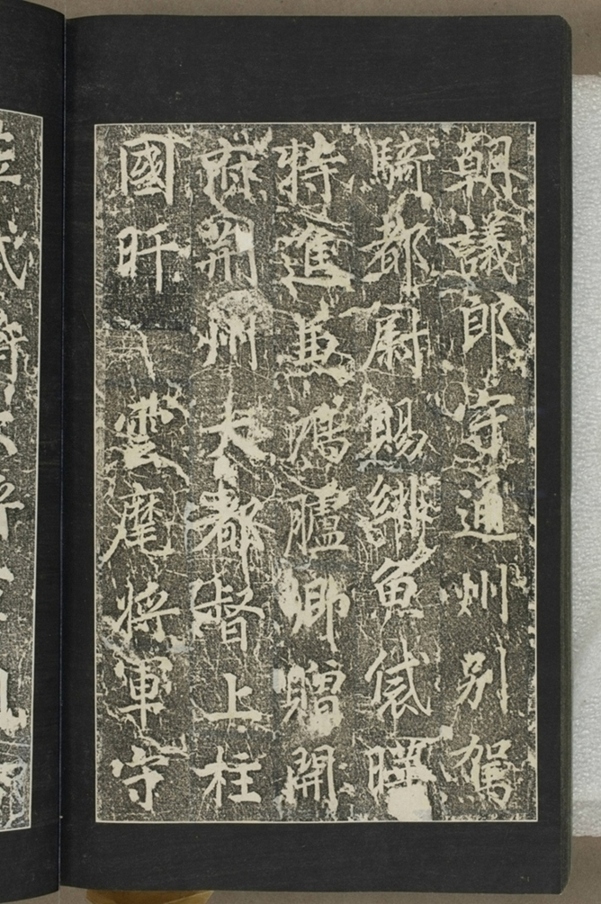 朝議郎守通州别駕
騎都尉賜緋魚袋
特進兼鴻臚卿贈開
府荊州大都督上柱
國旰雲麾將軍守